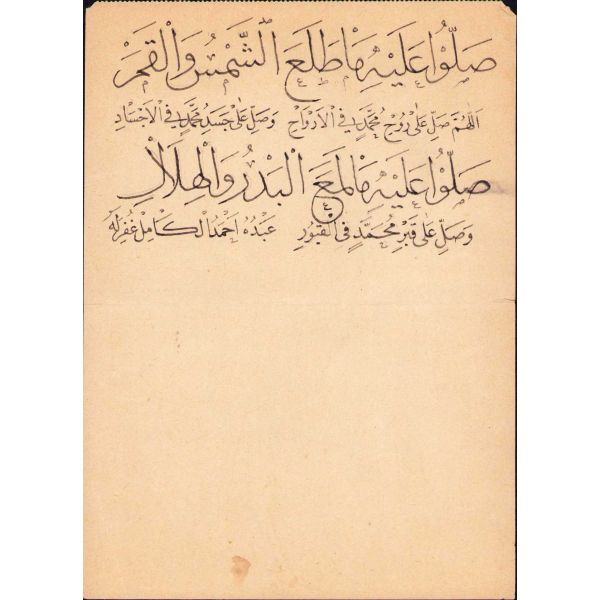 صَلُّوا عَلَيْهِ مَا طَلَعَ الشَّمْسُ وَالْقَمَرْ
اَللّٰهُمَّ صَلِّ عَلٰى رُوحِ مُحَمَّدٍ فِي الْاَرْوَاحِ وَصَلِّ عَلٰى جَسَدِ مُحَمَّدٍ فِي الْاَجْسَادِ
صَلُّوا عَلَيْهِ مَا لَمَعَ الْبَدْرُ وَالْهِلَالْ
وَصَلِّ عَلٰى قَبْرِ مُحَمَّدٍ فِي الْقُبُورِ عَبْدُهُ اَحْمَدُ الْكَامِلْ غُفِرَلَهُ